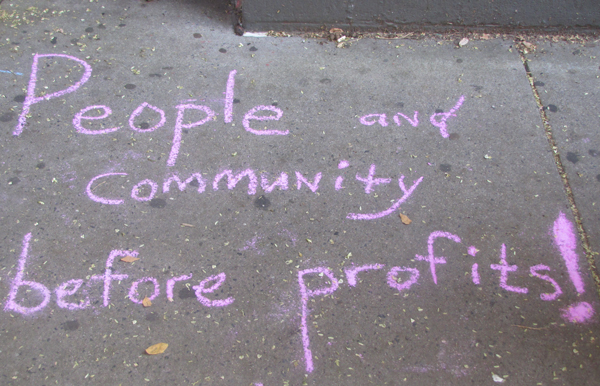 People and
community
before profits!